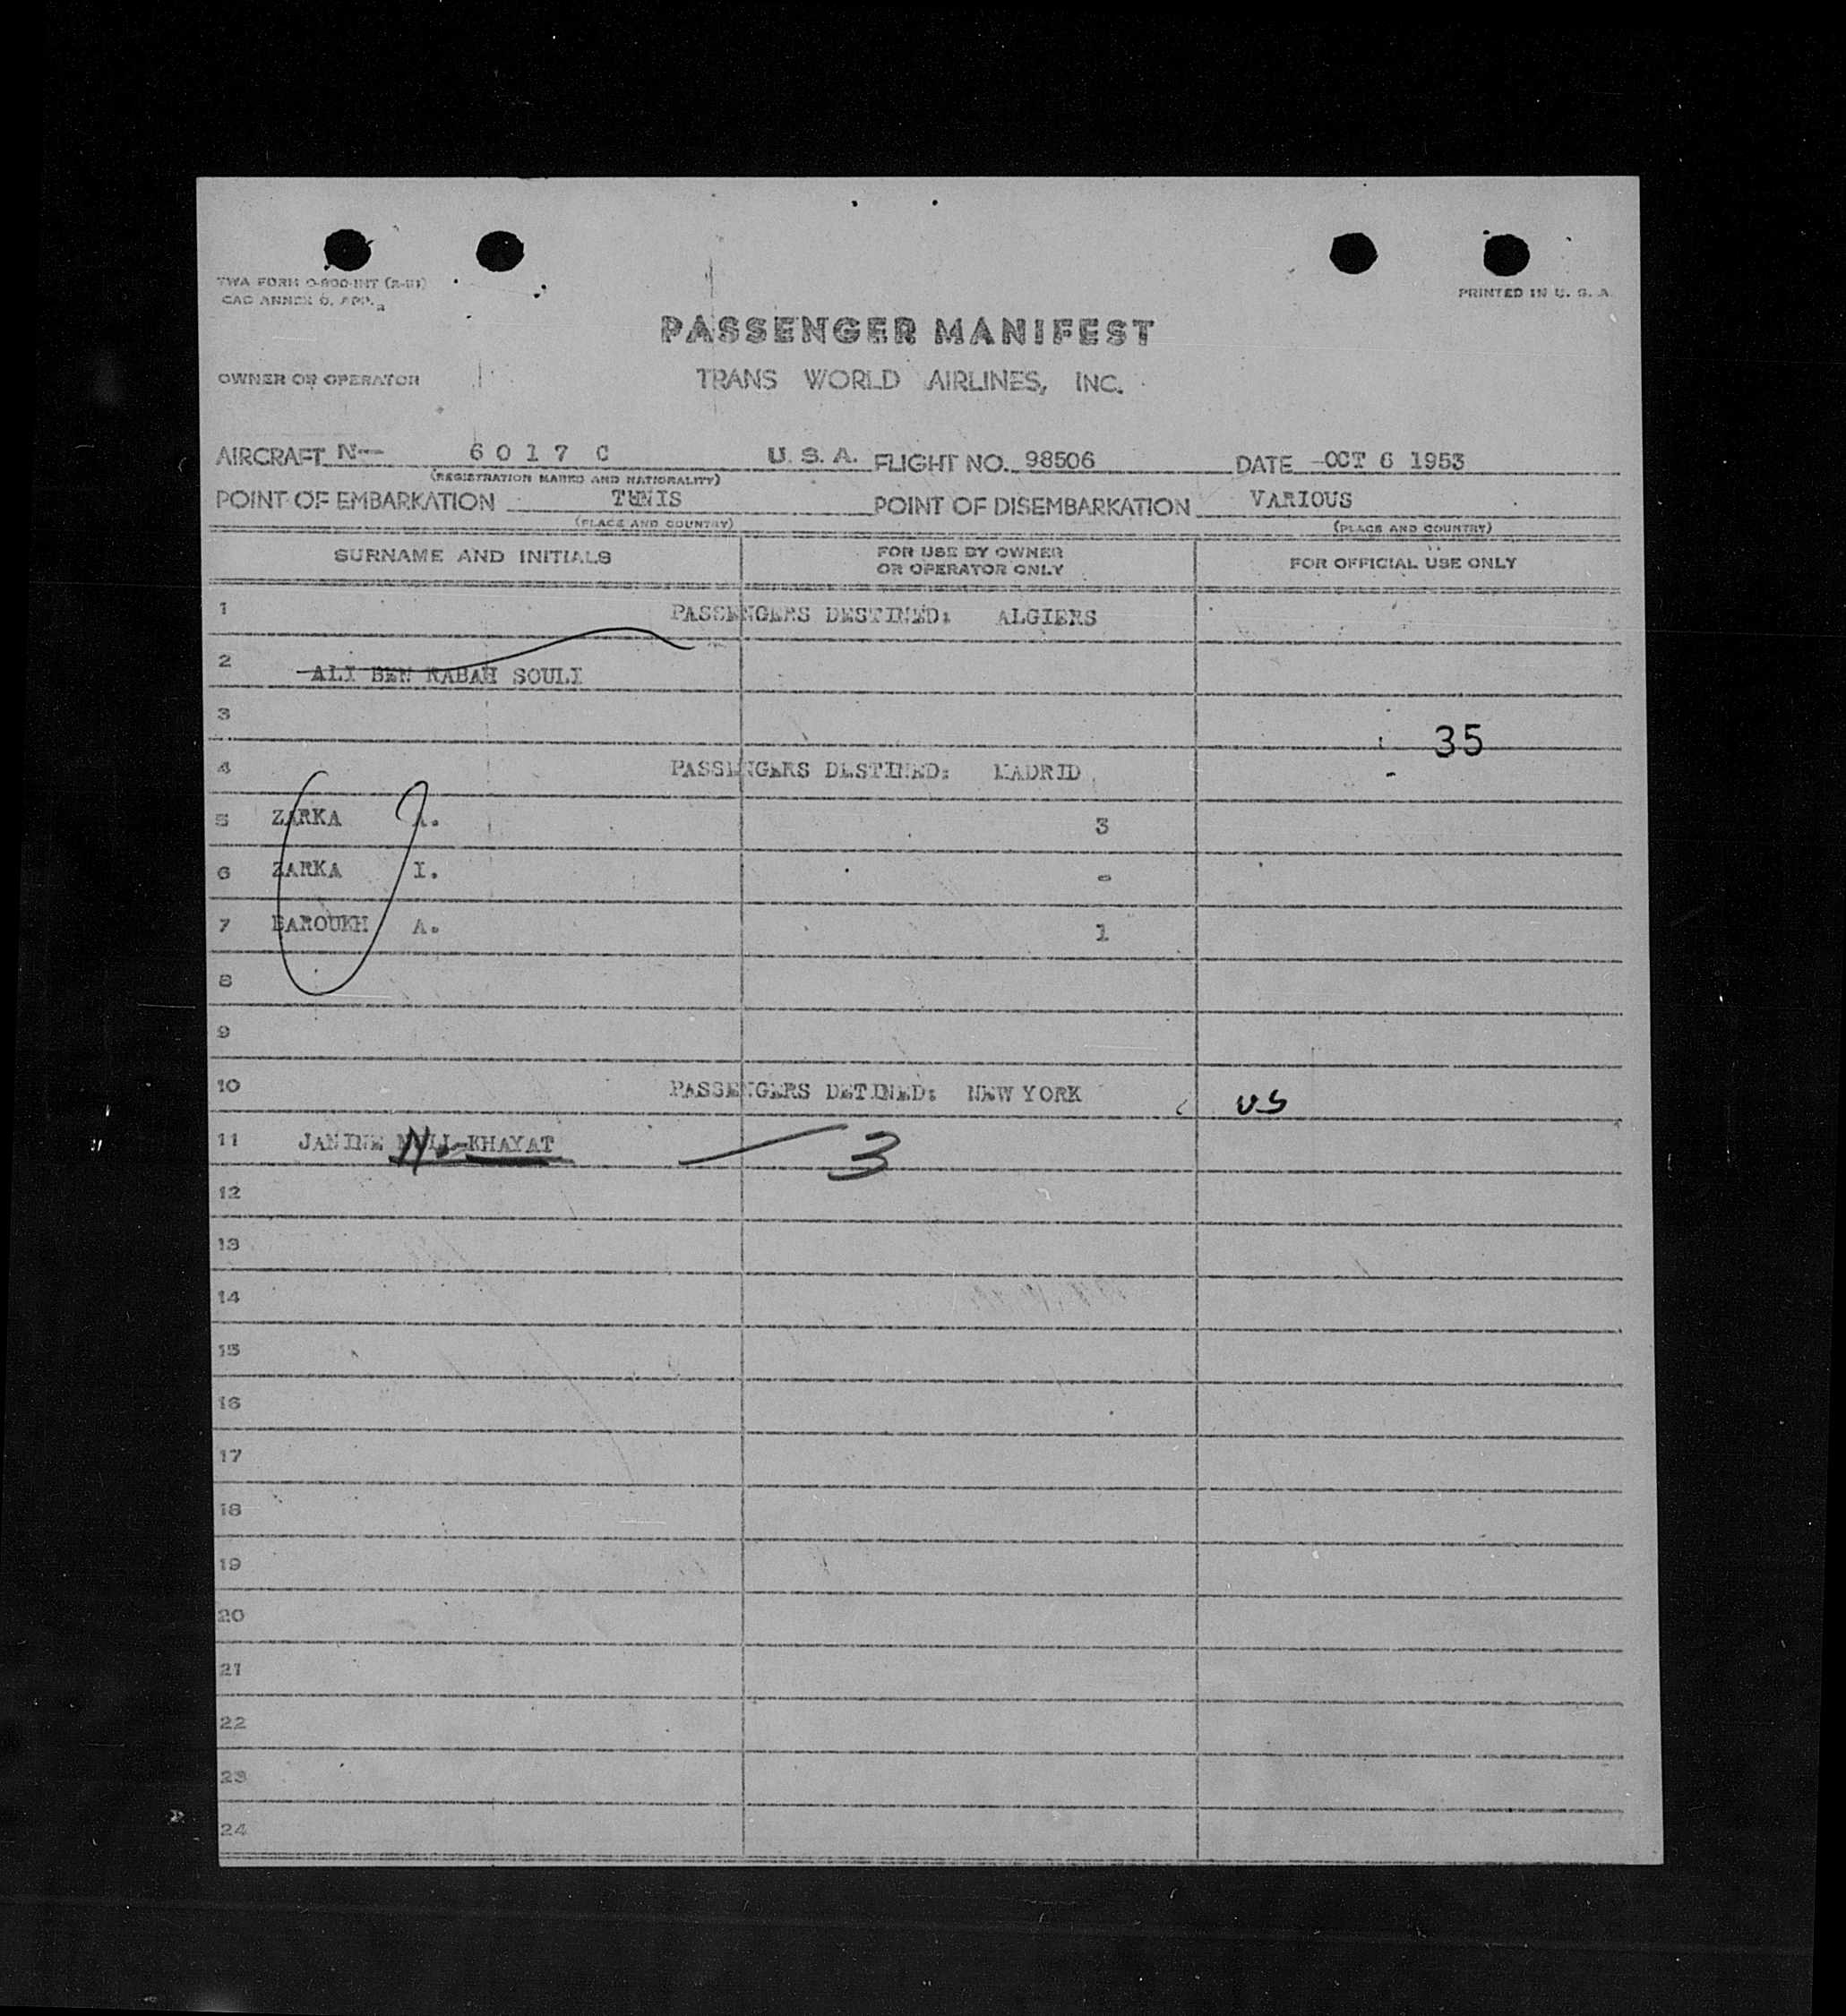 TWA FORM O-800-INT
CAO ANNEX 9, APP.
PRINTED IN U. S. A.
PASSENGER MANIFEST
OWNER OR OPERATOR TRANS WORLD AIRLINES, INC.
AIRCRAFT N- 6017 C U. S. A. FLIGHT NO. 98506 DATE OCT 6 1953
(REGISTRATION MARKS AND NATIONALITY)
POINT OF EMBARKATION TUNIS POINT OF DISEMBARKATION VARIOUS
(PLACE AND COUNTRY) (PLACE AND COUNTRY)
SURNAME AND INITIALS FOR USE BY OWNER OR OPERATOR ONLY FOR OFFICIAL USE ONLY
1 PASSENGERS DESTINED: ALGIERS
2 ALI BEN RABAH SOULI
3
35
4 PASSENGERS DESTINED: MADRID
5 ZARKA A. 3
6 ZARKA I. -
7 BAROUKH A. 1
8
9
10 PASSENGERS DETINED: NEW YORK US
11 JANINE KHAYAT 3
12
13
14
15
16
17
18
19
20
21
22
23
24